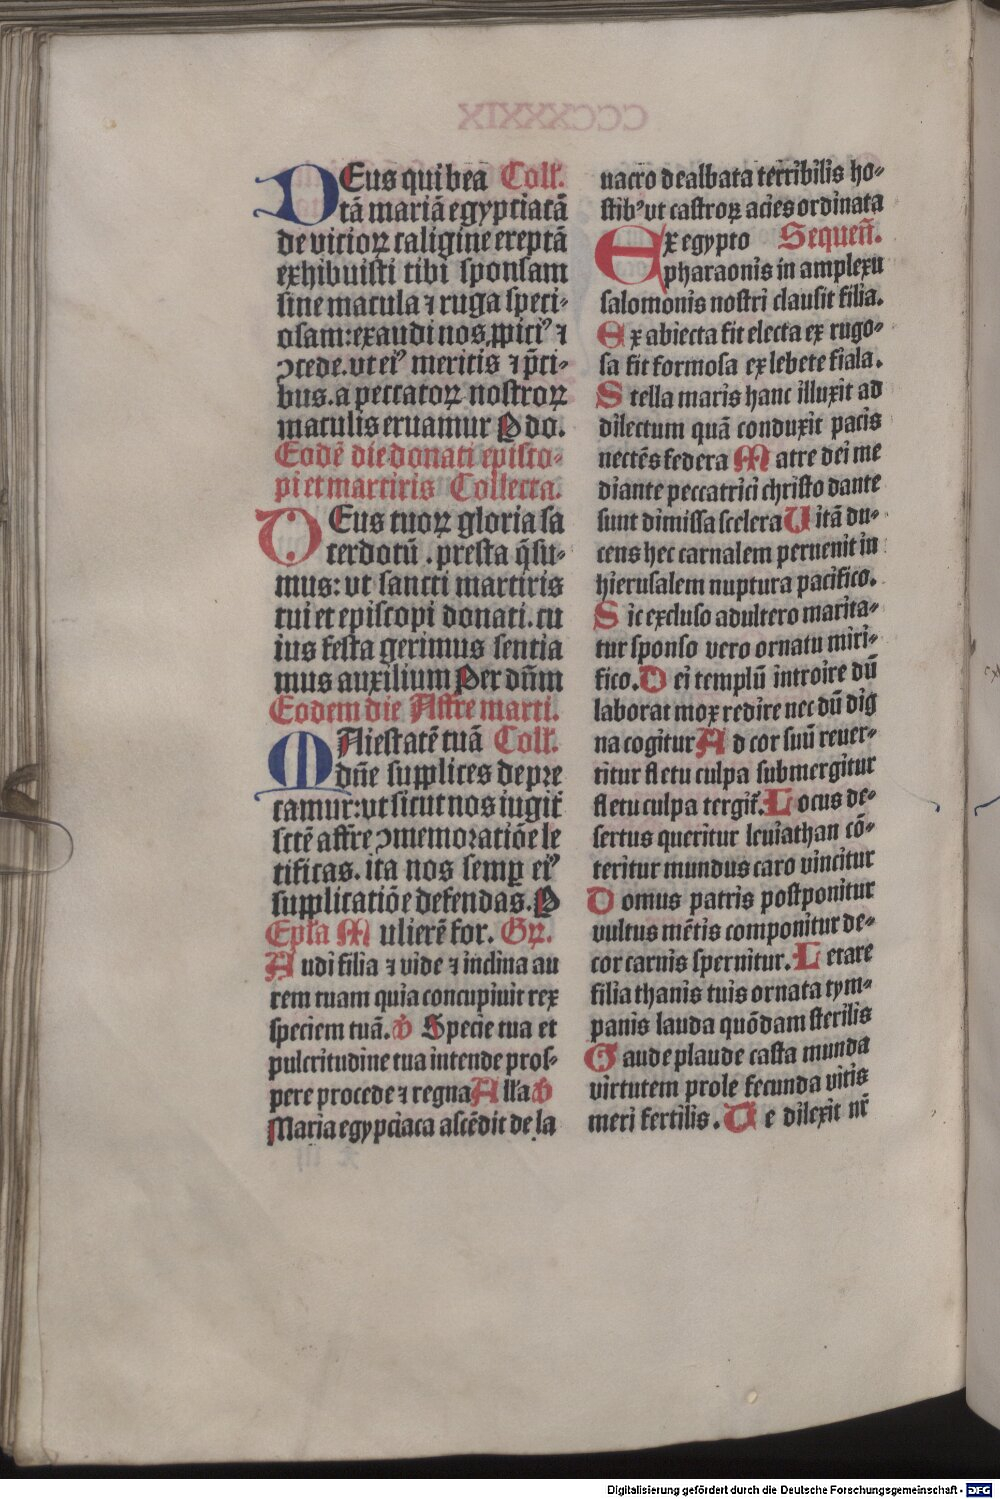 DEus qui bea Coll'.
tā mariā egypciacā
de vicioꝝ caligine ereptā
exhibuisti tibi sponsam
sine macula ⁊ ruga speci-
osam: exaudi nos ꝓpiciꝰ ⁊
ↄcede. vt eiꝰ meritis ⁊ p̄ci-
bus. a peccatoꝝ nostroꝝ
maculis eruamur P do.
Eodē die donati episco-
pi et martiris Collecta.
DEus tuoꝝ gloria sa
cerdotū . presta q̄su-
mus: vt sancti martiris
tui et episcopi donati. cu
ius festa gerimus sentia
mus auxilium Per dn̄m
Eodem die Affre marti.
MAiestatē tuā Coll'.
dn̄e supplices depre
camur: vt sicut nos iugit̄
scte̅ affre ↄmemoratiōe le
tificas. ita nos semꝑ eiꝰ
supplicatiōe defendas. P
Epl'a Mulierē for. Gꝝ.
Audi filia ⁊ vide ⁊ inclina au
rem tuam quia concupiuit rex
speciem tuā. V Specie tua et
pulcritudine tua intende pros-
pere procede ⁊ regna All'a V
Maria egypciaca ascēdit de la
uacro dealbata terribilis ho-
stibꝰ vt castroꝝ acies ordinata
EX egypto Sequen̄.
pharaonis in amplexu
salomonis nostri clausit filia.
Ex abiecta fit electa ex rugo-
sa fit formosa ex lebete fiala.
Stella maris hanc illuxit ad
dilectum quā conduxit pacis
nectēs federa Matre dei me
diante peccatrici christo dante
sunt dimissa scelera Vitā du-
cens hec carnalem peruenit in
hierusalem nuptura pacifico.
Sic excluso adultero marita-
tur sponso vero ornatu miri-
fico. Dei templū introire dū
laborat mox redire nec dū dig
na cogitur Ad cor suū reuer-
titur fletu culpa submergitur
fletu culpa tergit̄. Locus de-
sertus queritur leuiathan cō-
teritur mundus caro vincitur
Domus patris postponitur
vultus mētis componitur de-
cor carnis spernitur. Letare
filia thanis tuis ornata tym-
panis lauda quōdam sterilis
Gaude plaude casta munda
virtutem prole fecunda vitis
meri fertilis. Te dilexit nr̄
Digitalisierung gefördert durch die Deutsche Forschungsgemeinschaft - DFG